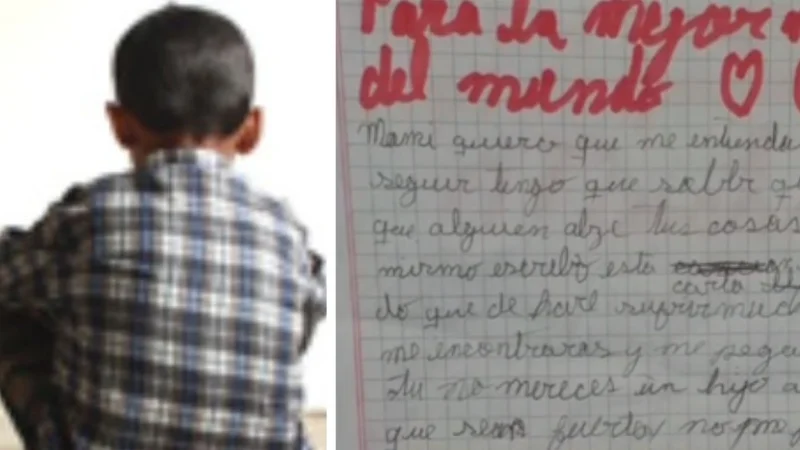 Para la mejor
del mundo ♡
Mami quiero que me entienda
seguir tengo que saber
que alguien alze tus cosas
mismo escribo esta
carta
do que de hare sufrir
me encontraras y me
tu no mereces un hijo a
que seas fuerte no